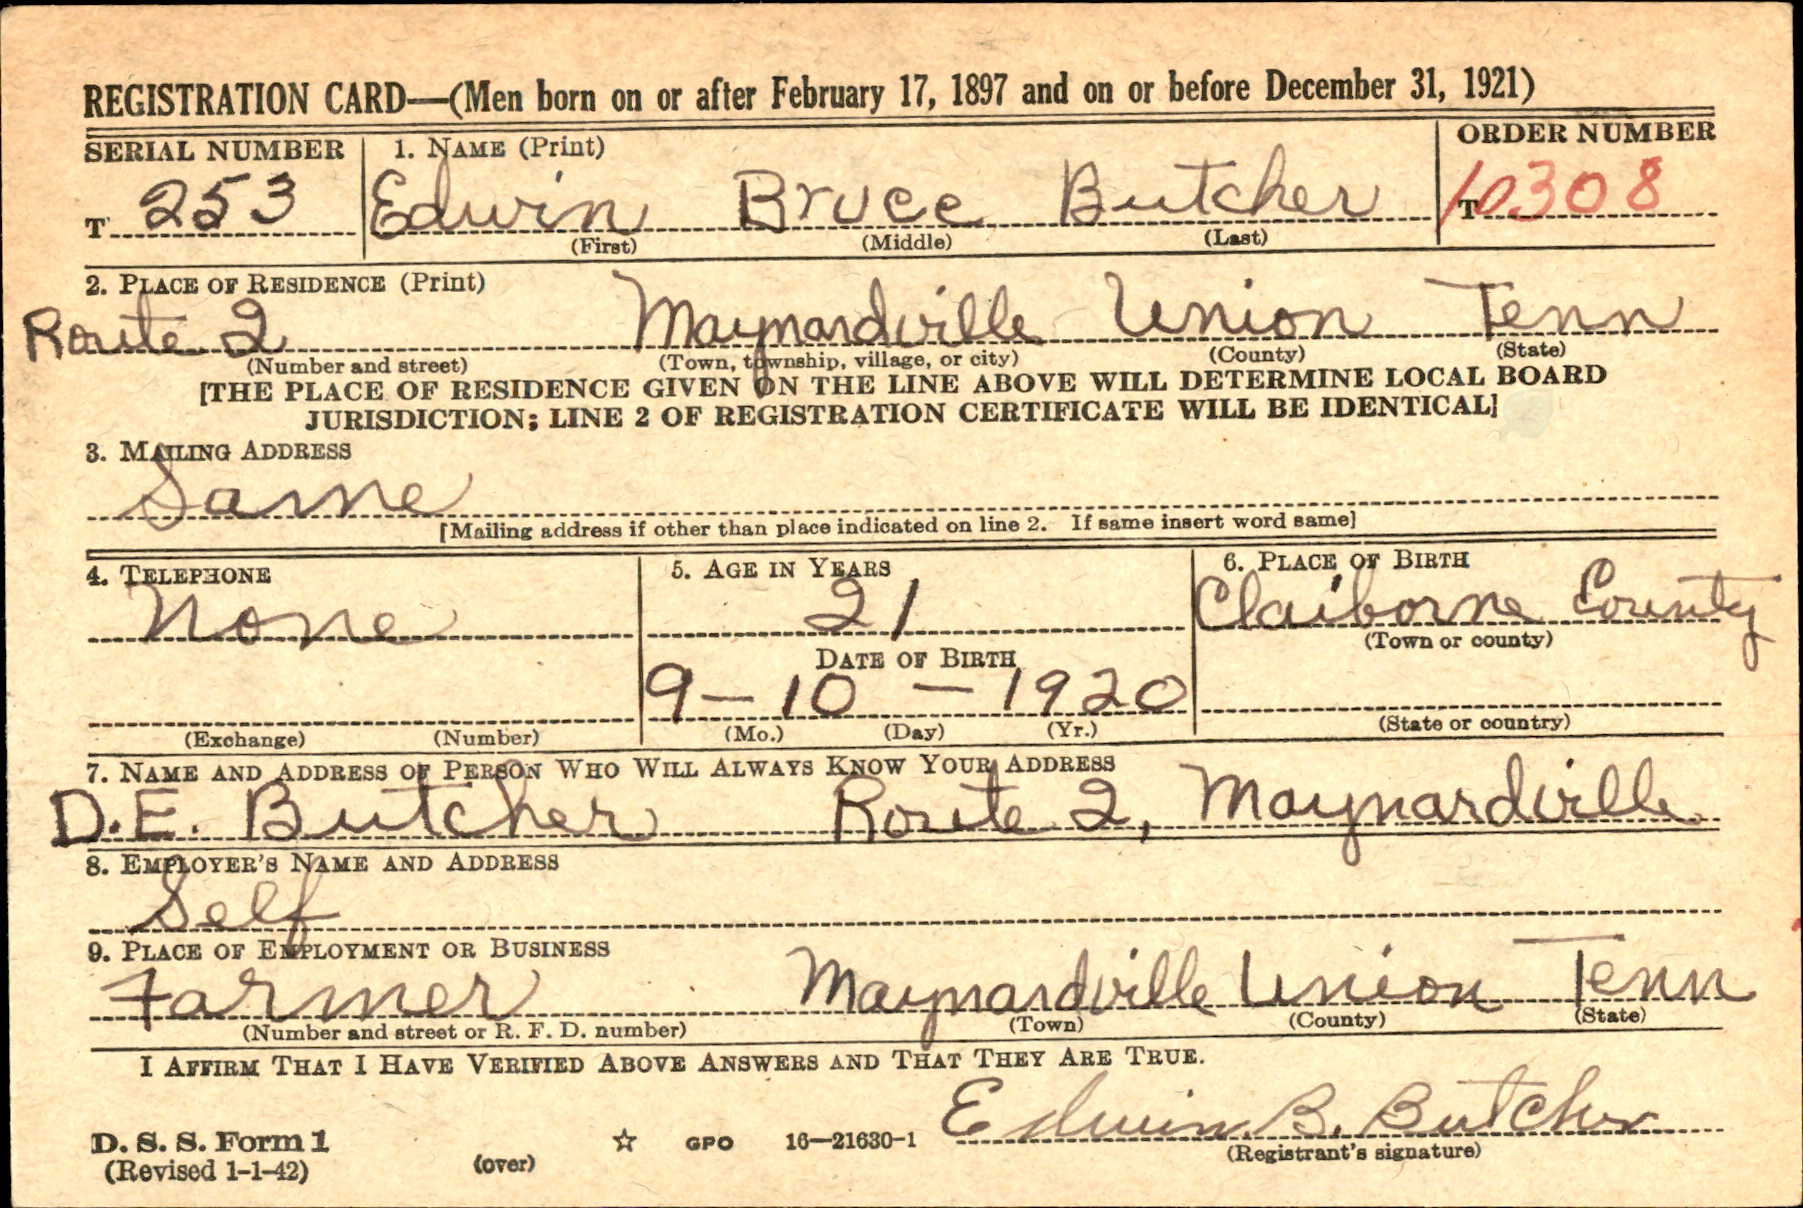 REGISTRATION CARD—(Men born on or after February 17, 1897 and on or before December 31, 1921)
SERIAL NUMBER 1. NAME (Print) ORDER NUMBER
T 253 Edwin Bruce Butcher T 10308
(First) (Middle) (Last)
2. PLACE OF RESIDENCE (Print)
Route 2 Maynardville Union Tenn
(Number and street) (Town, township, village, or city) (County) (State)
[THE PLACE OF RESIDENCE GIVEN ON THE LINE ABOVE WILL DETERMINE LOCAL BOARD
JURISDICTION; LINE 2 OF REGISTRATION CERTIFICATE WILL BE IDENTICAL]
3. MAILING ADDRESS
Same
[Mailing address if other than place indicated on line 2. If same insert word same]
4. TELEPHONE 5. AGE IN YEARS 6. PLACE OF BIRTH
None 21 Claiborne County
(Town or county)
DATE OF BIRTH
9-10-1920
(Exchange) (Number) (Mo.) (Day) (Yr.) (State or country)
7. NAME AND ADDRESS OF PERSON WHO WILL ALWAYS KNOW YOUR ADDRESS
D.E. Butcher Route 2, Maynardville
8. EMPLOYER'S NAME AND ADDRESS
Self
9. PLACE OF EMPLOYMENT OR BUSINESS
Farmer Maynardville Union Tenn
(Number and street or R. F. D. number) (Town) (County) (State)
I AFFIRM THAT I HAVE VERIFIED ABOVE ANSWERS AND THAT THEY ARE TRUE.
Edwin. B. Butcher
D. S. S. Form 1 ☆ GPO 16—21630-1 (Registrant's signature)
(Revised 1-1-42) (over)